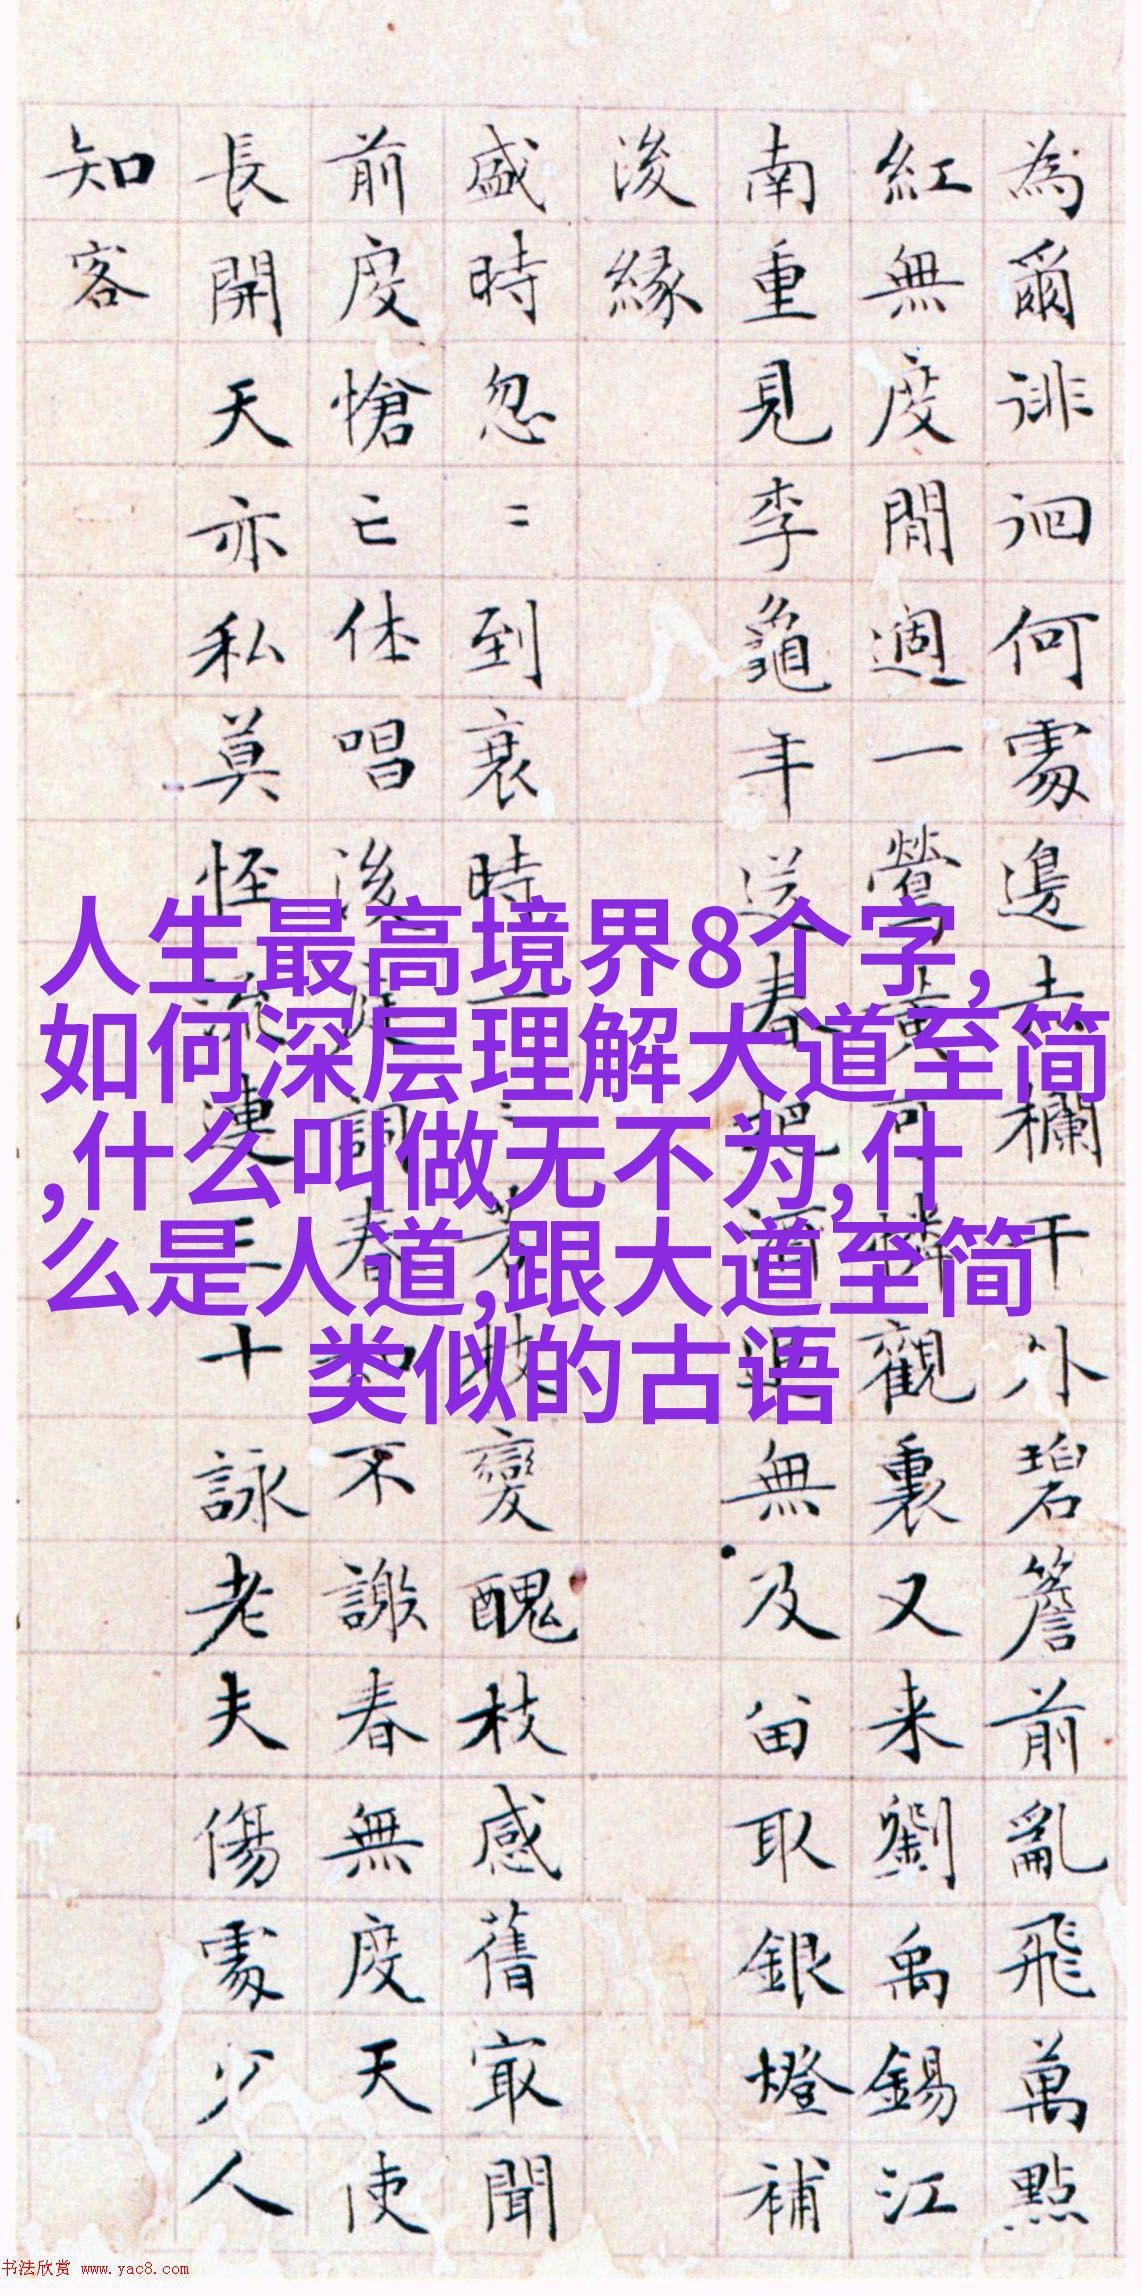 為爾徘徊何處邊欄干外碧簷前亂飛萬點
紅無度閒週一鶯黃可憐觀裏又来劉禹錫江
南重見李龜年送春把酒無及畄取銀燈補
後緣
盛時忽〻到衰時一〻芳枝變醜枝感舊冣聞
前度愴亡休唱後庭詞春如不謝春無度天使
長開天亦私莫怪流連三十詠老夫傷處少人
知客
人生最高境界8个字,
如何深层理解大道至简
,什么叫做无不为,什
么是人道,跟大道至简
类似的古语
书法欣赏 www.yac8.com